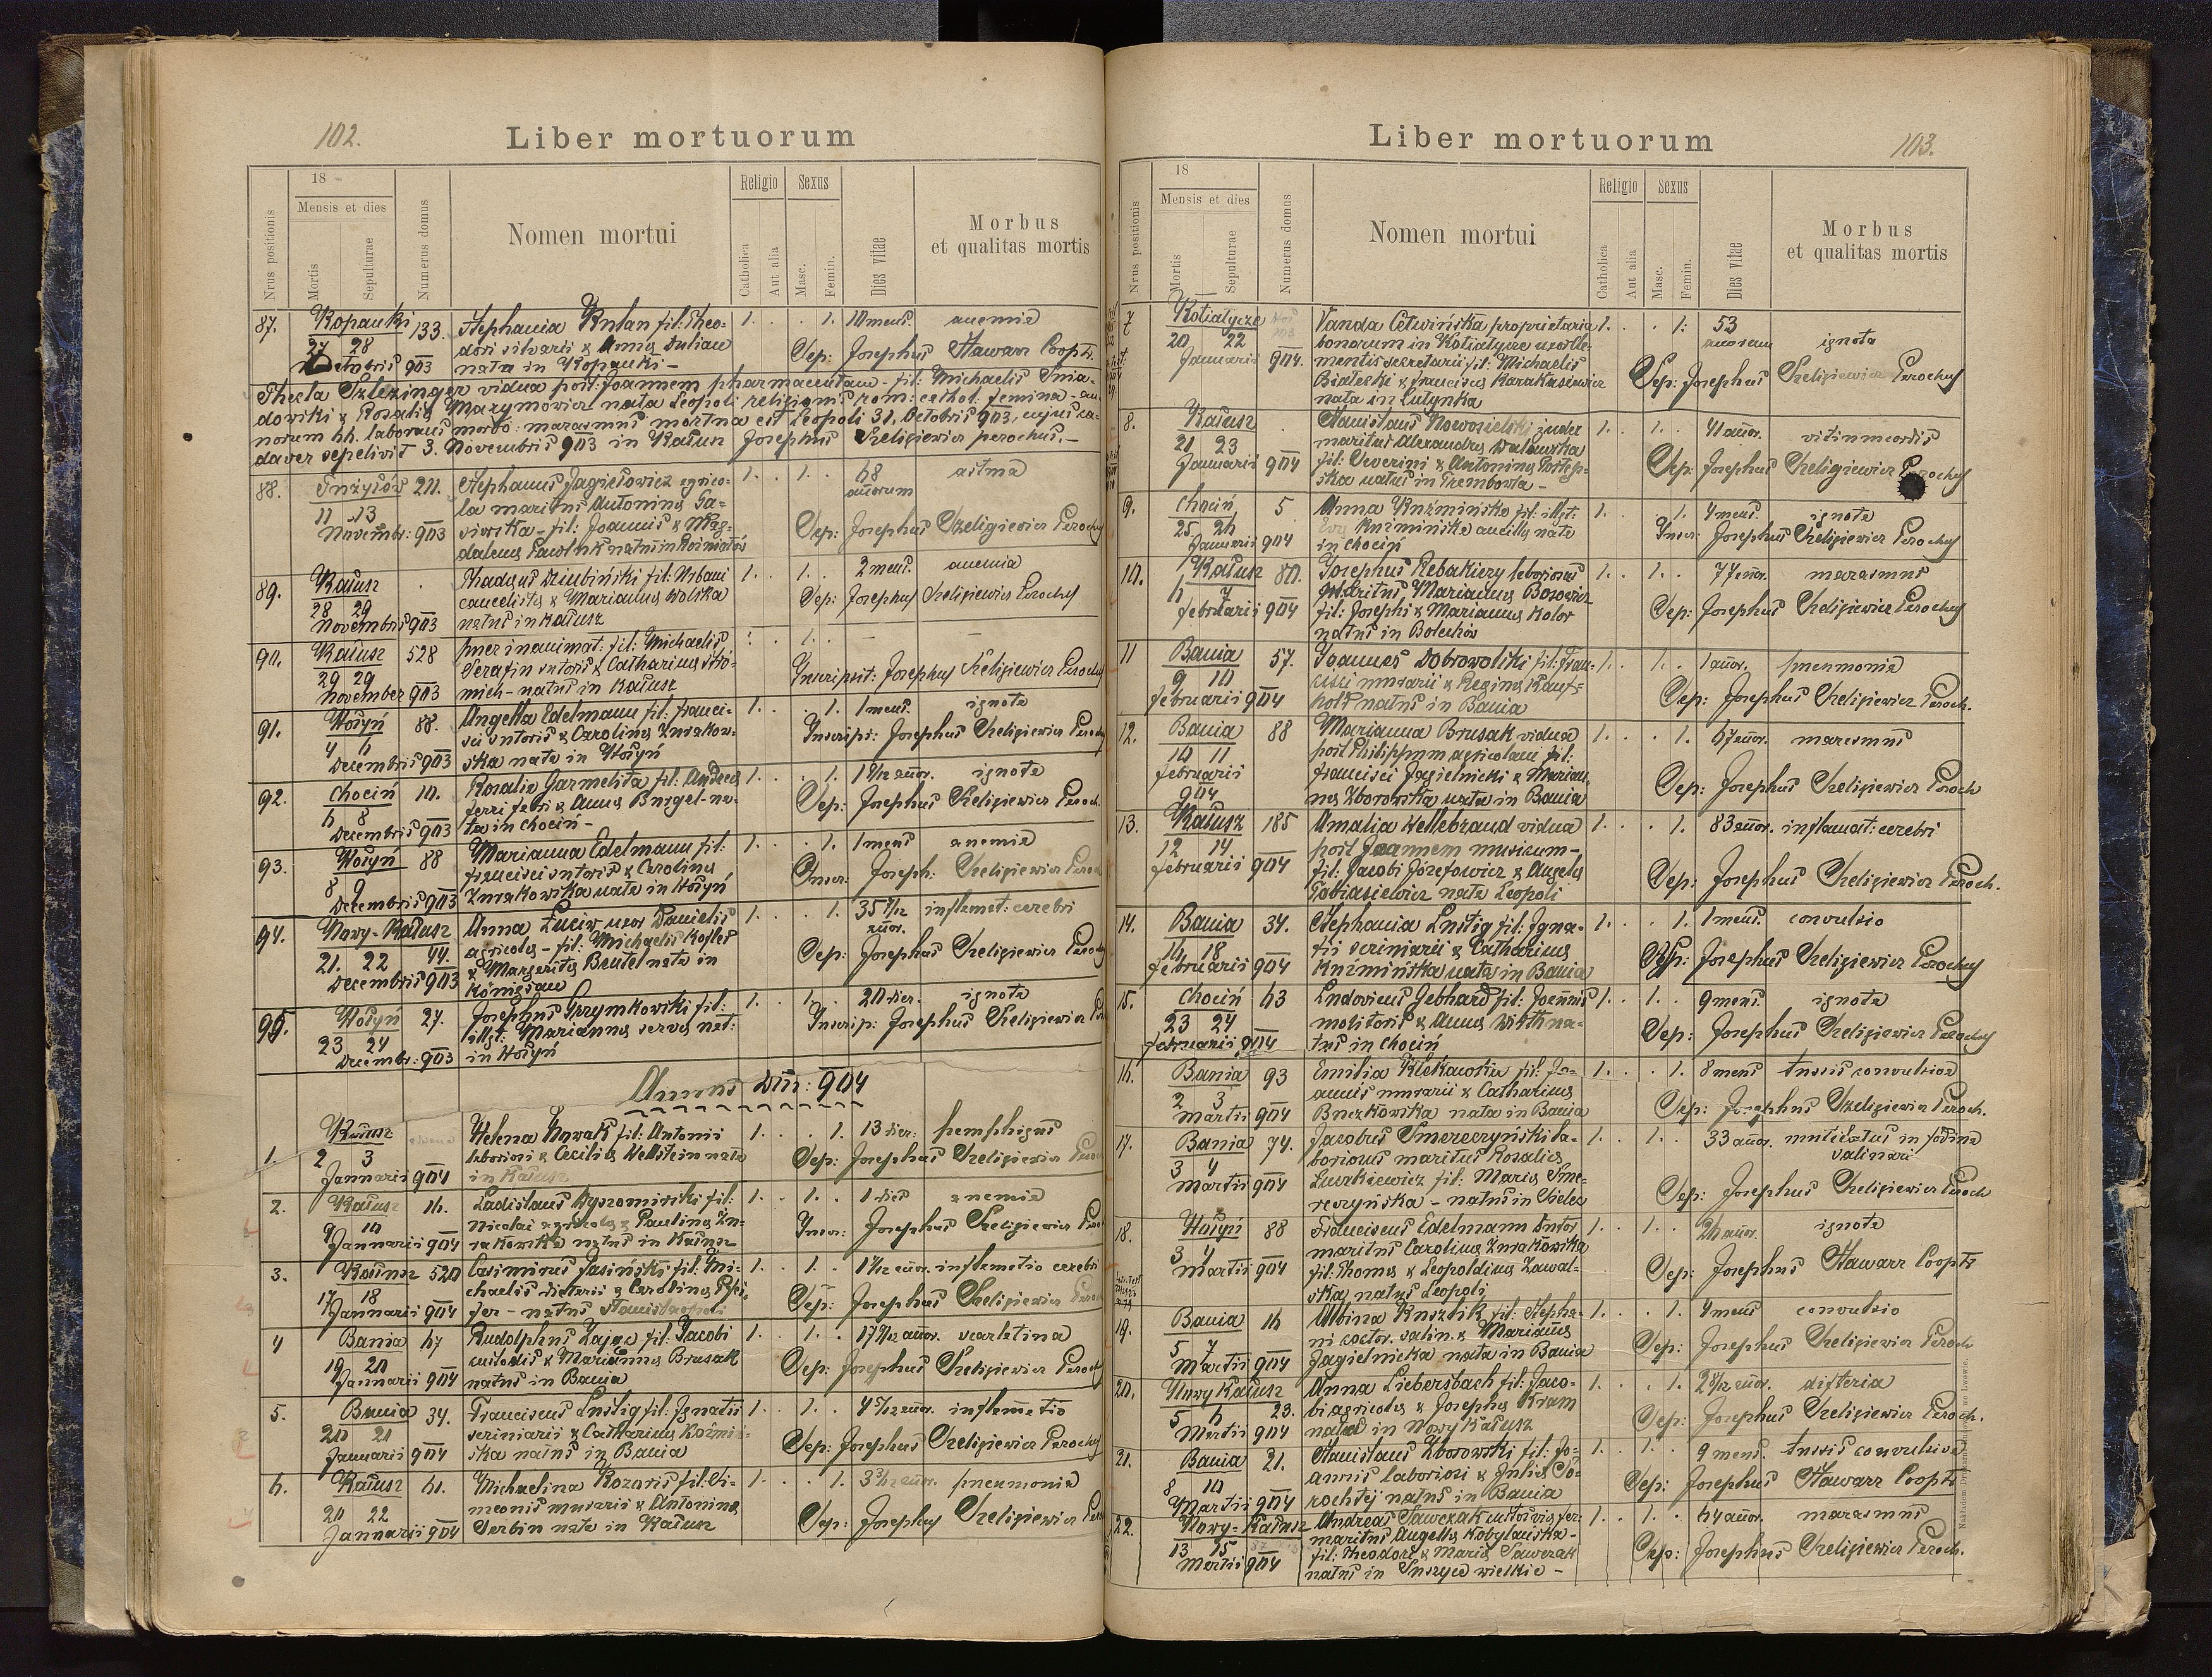 102.
Liber mortuorum
Nrus positionis
18
Mensis et dies
Mortis
Sepulturae
Numerus domus
Nomen mortui
Religio
Catholica
Aut alia
Sexus
Masc.
Femin.
Dies vitae
Morbus
et qualitas mortis
87. Kopanki 133. Stephania Kulan fil: Theo- 1. 1. 10 mens. anemia
27 28 dori silvarii & Annae Dulian Sep: Josephus Hawarz Coopr
Octobris 903 nata in Kopanki -
Thecla Szlezinger vidua post Joannem pharmaceutam - fil: Michaelis Snia-
dowski & Rosaliae Marymowicz nata Leopoli religionis rom: cathol. femina - an-
norum 66. laborans morbo: marasmus mortua est Leopoli 31. Octobris 903, cujus ca-
daver sepelivit 3. Novembris 903 in Kałusz Josephus Szeligiewicz parochus. -
88. 211. Stephanus Jagiełowicz agrico- 1. 1. 68 astma
la maritus Antoninae annorum
11 13 fil: Joannis & Mag- Sep: Josephus Szeligiewicz Parochus
Novembr: 903 dalenae natus in Rożniatów
89. Kałusz Thadaeus Dziubiński fil: Urbani 1. 1. 2 mens. anemia
28 29 cancelistae & Mariannae Wolska Sep: Josephus Szeligiewicz Parochus
Novembris 903 natus in Kałusz
90. Kałusz 528 puer inanimat: fil: Michaelis 1. - -
29 29 Serafin sutoris & Catharinae Inscripsit: Josephus Szeligiewicz Parochus
November 903 natus in Kałusz
91. Hołyń 88. Angella Edelmann fil: Franci- 1. 1. 1 mens. ignota
4 6 sci sutoris & Carolinae Żurakow- Inscrips: Josephus Szeligiewicz Paroch
Decembris 903 ska nata in Hołyń
92. Chocin 10. Rosalia Garmelita fil: Andreae 1. 1. 1 annor. ignota
6 8 ferri fabri & Annae na- Sep: Josephus Szeligiewicz Paroch.
Decembris 903 ta in Chocin -
93. Hołyń 88 Marianna Edelmann fil: 1. 1. 1 mens anemia
8 9 Francisci sutoris & Carolinae Inscr: Joseph: Szeligiewicz Paroch
Decembris 903 Żurakowska nata in Hołyń
94. Nowy-Kałusz Anna Łuciw uxor Danielis 1. 1. 35 7/12 inflamat: cerebri
44. agricolae - fil: Michaelis annor.
21. 22 & Margaritae Beutel nata in Sep: Josephus Szeligiewicz Paroch
Decembris 903 Königsau
95. Hołyń 27. Josephus Grzymkowski fil: 1. 1. 20 dier. ignota
23 24 illgt: Mariannae servae nat: Inscrip: Josephus Szeligiewicz
Decembr: 903 in Hołyń
Annus Dni: 904
1. Kałusz Helena Nowak fil: Antonii 1. 1. 13 dier: pemphigus
2 3 laboriosi & Ceciliae Wellstein nata Sep: Josephus Szeligiewicz
Januarii 904 in Kałusz
2. Kałusz 16. Ladislaus fil: 1. 1. 1 diei anemia
9 10 Nicolai agricolae & Paulinae Żu- Inscr: Josephus Szeligiewicz
Januarii 904 rakowska natus in Kałusz
3. Kałusz 520 Casimirus Jasiński fil: Mi- 1. 1. annor. inflamatio cerebri
17 18 chaelis & Carolinae Sep: Josephus Szeligiewicz
Januarii 904 natus Stanislaopoli
4 Bania 67 Rudolphus Zając fil: Jacobi 1. 1. annor. scarlatina
19 20 custodis & Mariannae Brusak Sep: Josephus Szeligiewicz Paroch
Januarii 904 natus in Bania
5. Bania 34. Franciscus Lustig fil: Ignatii 1. 1. 4 5/12 annor. inflamatio
20 21 scriniarii & Catharinae Kuźmiń- Sep: Josephus Szeligiewicz Parochus
Januarii 904 ska natus in Bania
6. Kałusz 61. Michaelina Kozoris fil: Si- 1. 1. annor. pneumonia
20 22 meonis murarii & Antoninae Sep: Josephus Szeligiewicz
Januarii 904 Serbin nata in Kałusz
Liber mortuorum
103.
Nrus positionis
18
Mensis et dies
Mortis
Sepulturae
Numerus domus
Nomen mortui
Religio
Catholica
Aut alia
Sexus
Masc.
Femin.
Dies vitae
Morbus
et qualitas mortis
7 Kotiatycze Vanda Cetwińska proprietaria 1. 1. 53
20 22 bonorum in Kotiatycze uxor Cle- annorum ignota
Januarii 904. mentis secretarii fil: Michaelis
Białecki & Franciscae Karakasiewicz Sep: Josephus Szeligiewicz Parochus
nata in Lutynka
8. Kałusz Stanislaus Nowosielski 1. 1. 41 annor. vitium cordis
21 23 maritus Alexandrae
Januarii 904 fil: Severini & Antoninae Sep: Josephus Szeligiewicz Parochus
natus in Trembowla -
9. Chocin 5 Anna Kuźmińska fil: illgt: 1. 4 mens. ignota
25 26 Evae Kuźmińska ancillae nata Inscr: Josephus Szeligiewicz Parochus
Januarii 904 in Chocin
10. Kałusz 80. Josephus Rebakiery laboriosus 1. 1. 77 annor. marasmus
6 7 maritus Mariannae Borowicz
Februarii 904 fil: Josephi & Mariannae Kolor Sep: Josephus Szeligiewicz Parochus
natus in Bolechów
11 Bania 57. Joannes Dobrowolski fil: Fran- 1. 1. 1 annor. pneumonia
9 10 cisci murarii & Reginae Sep: Josephus Szeligiewicz Paroch.
Februarii 904 natus in Bania
12. Bania 88 Marianna Brusak vidua 1. 1. 67 annor. marasmus
10 11 post Philippum agricolam fil:
Februarii Francisci Jagielnicki & Marian- Sep: Josephus Szeligiewicz Paroch
904 nae Zborowska nata in Bania
13. Kałusz 185 Amalia Hellebrand vidua 1. 1. 83 annor. inflamat: cerebri
12 14 post Joannem musicum -
Februarii 904 fil: Jacobi Józefowicz & Angelae Sep: Josephus Szeligiewicz Paroch.
Tobiasiewicz nata Leopoli
14. Bania 34. Stephania Lustig fil: Igna- 1. 1. 1 mens. convulsio
16 18 tii scriniarii & Catharinae Sep: Josephus Szeligiewicz Parochus
Februarii 904 Kuźmińska nata in Bania
15. Chocin 63 Ludovicus Gebhard fil: Joannis 1. 1. 9 mens. ignota
23 24 molitoris & Annae Wirth na- Sep: Josephus Szeligiewicz Parochus
Februarii 904 tus in Chocin
16. Bania 93 Emilia fil: Jo- 1. 1. 8 mens tussis convulsiva
2 3 annis murarii & Catharinae
Martii 904 Buczkowska nata in Bania Sep: Josephus Szeligiewicz Paroch.
17. Bania 74. Jacobus Smereczyński la- 1. 1. 33 annor. mutilatus in fodina
3 4 boriosus maritus Rosaliae salinari
Martii 904 Łuszkiewicz fil: Mariae Sme-
reczyńska - natus in Sielec Sep: Josephus Szeligiewicz Paroch
18. Hołyń 88 Franciscus Edelmann sutor 1. 1. 26 annor. ignota
3 4 maritus Carolinae Żurakowska
Martii 904 fil: Thomae & Leopoldinae Zawal- Sep: Josephus Hawarz Coopr
ska natus Leopoli
19. Bania 16 Albina fil: Stepha- 1. 1. 4 mens convulsio
5 7 ni coctor. salin. & Mariannae Sep: Josephus Szeligiewicz Paroch
Martii 904 Jagielnicka nata in Bania
20. Nowy Kałusz Anna Liebersbach fil: Jaco- 1. 1. annor. difteria
5 6 23. bi agricolae & Josephae Kram Sep: Josephus Szeligiewicz Paroch.
Martii 904 nata in Nowy Kałusz
21. Bania 21. Stanislaus Zborowski fil: Jo- 1. 1. 9 mens. tussis convulsiva
8 10 annis laboriosi & Juliae So- Sep: Josephus Hawarz Coopr
Martii 904 rochtej natus in Bania
22. Nowy-Kałusz Andreas Sawczak 1. 1. 64 annor. marasmus
13 15 maritus Angelae Kobylańska -
Martii 904 fil: Theodori & Mariae Sawczak Sep: Josephus Szeligiewicz Paroch.
natus in wielkie -